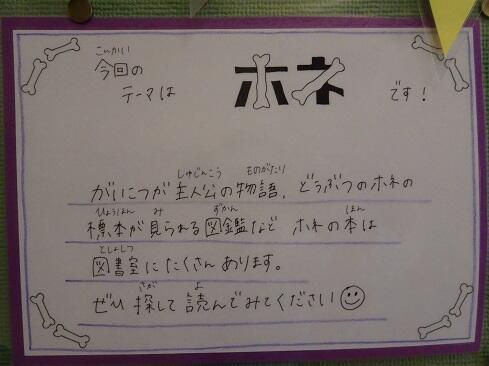 こんかい
今回の
テーマは ホネ です!
しゅじんこう ものがたり
がいこつが主人公の物語、どうぶつのホネの
ひょうほん み ずかん ほん
標本が見られる図鑑など ホネの本は
としょしつ
図書室にたくさんあります。
さが よ
ぜひ探して読んでみてください